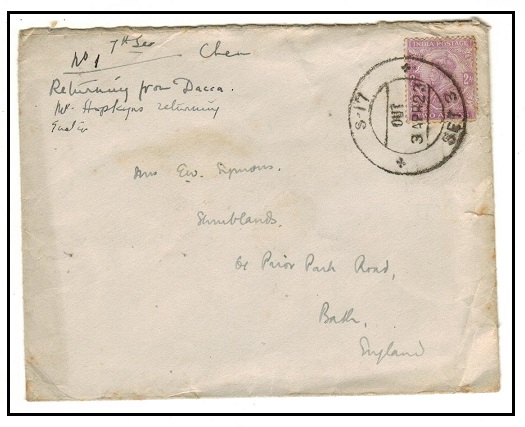 No 1 7th Sec Chem
Returning from Dacca.
Mr Hopkyns returning
Easter
INDIA POSTAGE
S-17
OUT
3 APR 23
SET 3
Mrs E.W. Symons.
Shrublands.
Prior Park Road,
Bath,
England